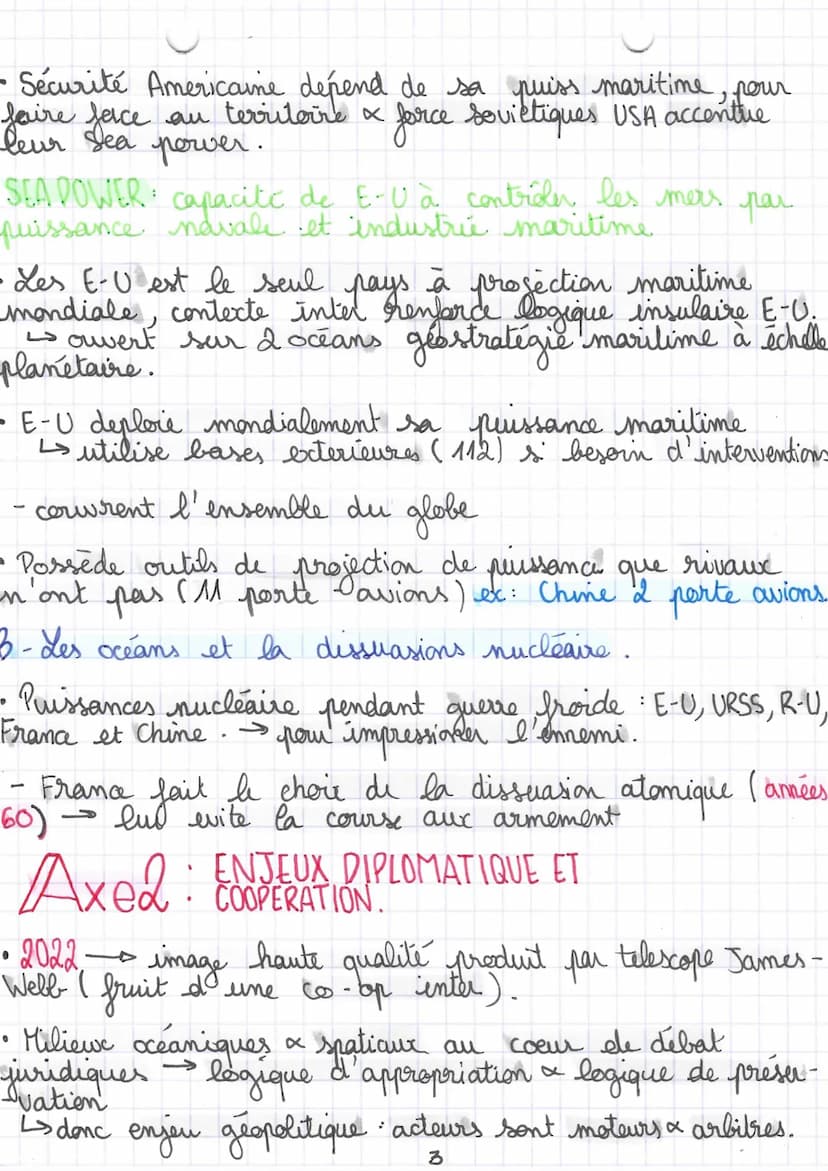 • Sécurité Americaine dépend de sa puiss maritime, pour
faire face au territoire ∝ force soviétiques USA accentue
leur Sea power.
SEA POWER: capacité de E-U à contrôler les mers par
puissance navale et industrie maritime
• Les E-U est le seul pays à projèction maritime
mondiale, contexte inter renforce logique insulaire E-U.
↳ ouvert sur 2 océans géostratégie maritime à échelle
planétaire.
• E-U deploie mondialement sa puissance maritime
↳ utilise bases exterieures (112) si besoin d'interventions
- couvrent l'ensemble du globe
• Possède outils de projection de puissance que rivaux
n'ont pas (11 porte-avions) ex: Chine 2 porte avions.
B - Les océans et la dissuasions nucléaire.
• Puissances nucléaire pendant guerre froide : E-U, URSS, R-U,
France et Chine. → pour impressioner l'ennemi.
- France fait le choix de la dissuasion atomique (années
60) → evite la course aux armement
Axe2 : ENJEUX DIPLOMATIQUE ET
COOPERATION.
• 2022 → image haute qualité produit par telescope James-
Webb (fruit d'une co-op inter).
• Milieux océaniques ∝ spatiaux au coeur de débat
juridiques → logique d'appropriation ∝ logique de préser-
vation
↳ donc enjeu géopolitique : acteurs sont moteurs ∝ arbitres.
3